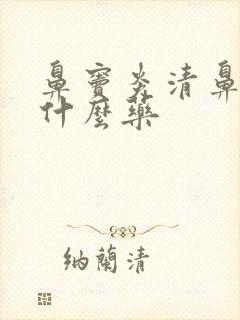 鼻窦炎清鼻
什麼藥
纳蘭清